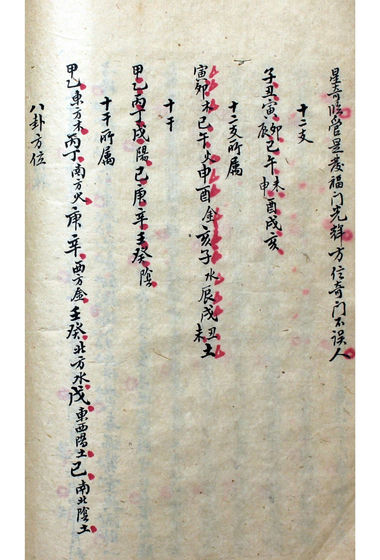 星奇临管是发福门光辉方位奇门不误人
十二支
子丑寅卯辰巳午未申酉戌亥
十二支所属
寅卯木巳午火申酉金亥子水辰戌丑未土
十干
甲乙丙丁戊陽己庚辛壬癸陰
十干所属
甲乙東方木丙丁南方火庚辛西方金壬癸北方水戊東西陽土己南北陰土
八卦方位